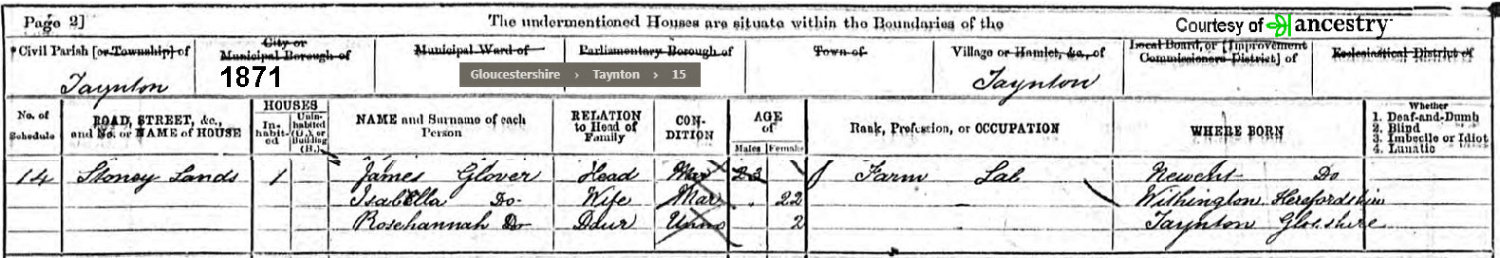 Page 2] The undermentioned Houses are situate within the Boundaries of the Courtesy of ancestry
Civil Parish [or Township] of City or Municipal Borough of Municipal Ward of Parliamentary Borough of Town of Village or Hamlet, &c., of Local Board, or [Improvement Commissioners District] of Ecclesiastical District of
Taynton 1871 Gloucestershire › Taynton › 15 Taynton
No. of Schedule ROAD, STREET, &c., and No. or NAME of HOUSE HOUSES Inhabited Uninhabited (U.), or Building (B.) NAME and Surname of each Person RELATION to Head of Family CONDITION AGE of Males Females Rank, Profession, or OCCUPATION WHERE BORN Whether 1. Deaf-and-Dumb 2. Blind 3. Imbecile or Idiot 4. Lunatic
14 Stoney Lands 1 James Glover Head Mar 23 Farm Lab Newent Do
Isabella Do Wife Mar 22 Withington Herefordshire
Rosehannah Do Daur Unm 2 Taynton Glos.shire